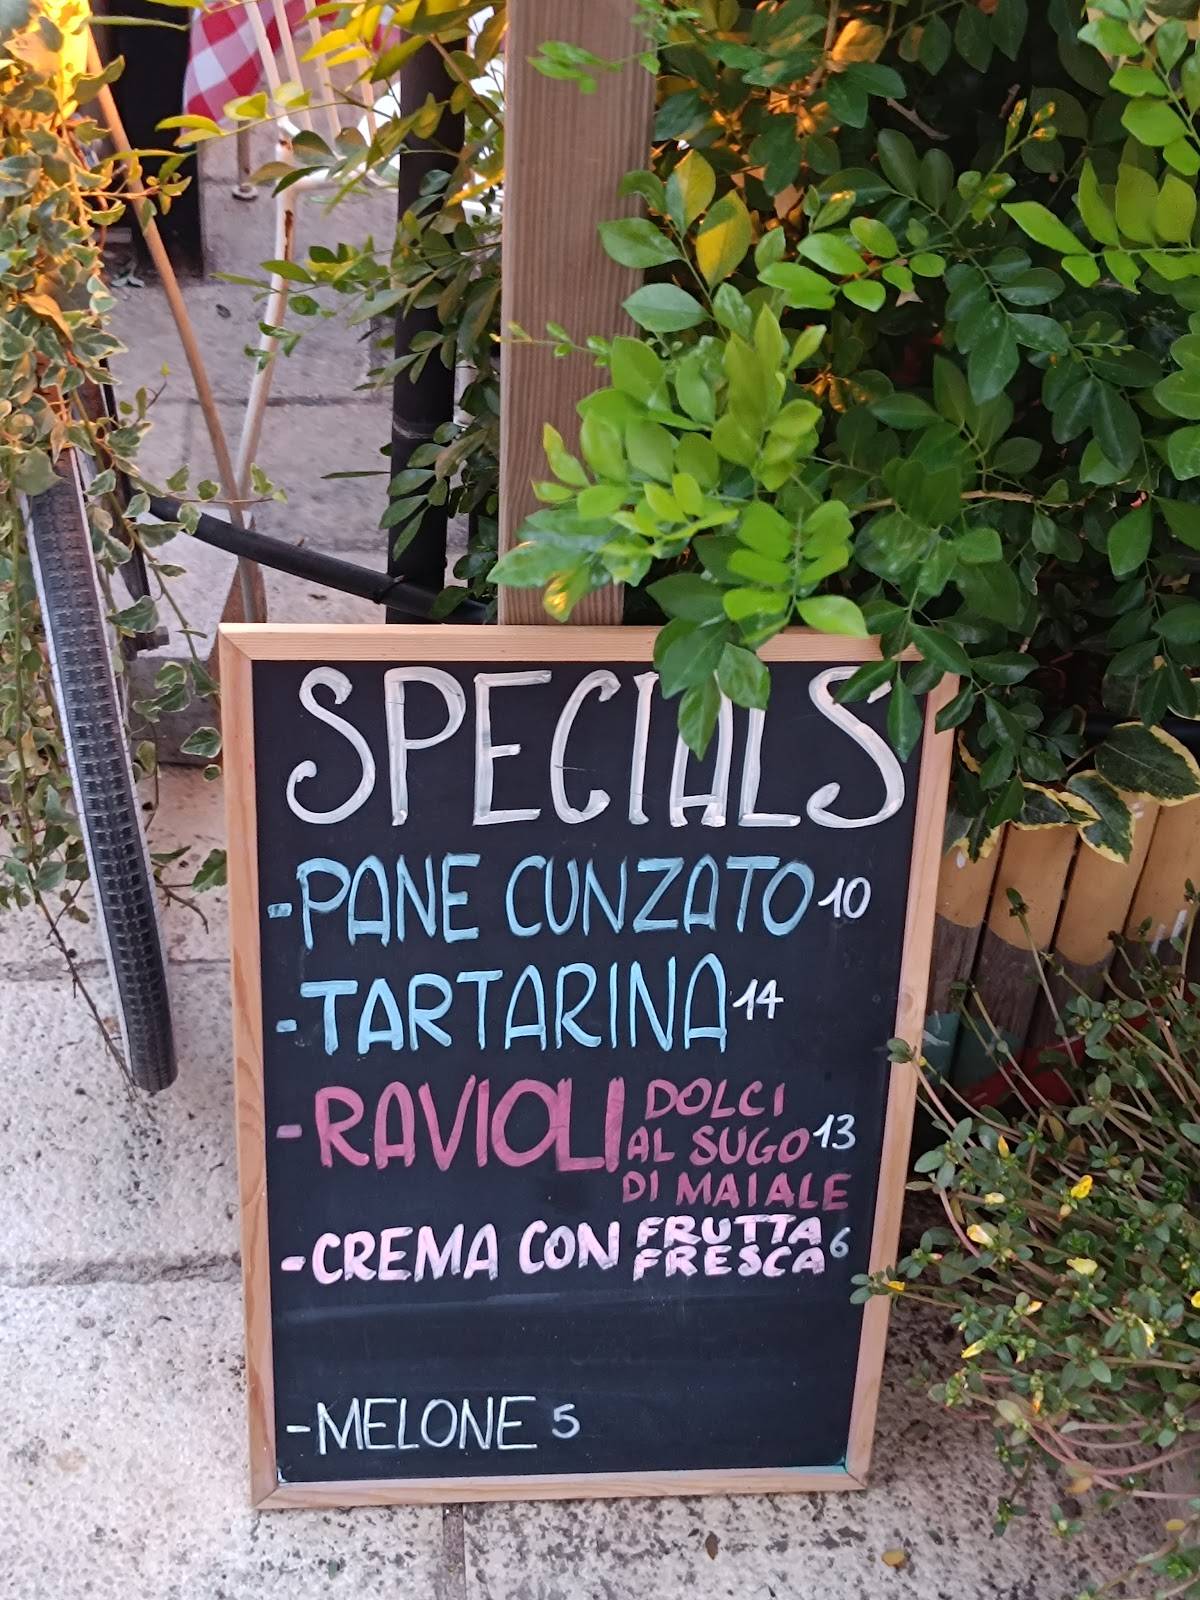 SPECIALS
- PANE CUNZATO 10
- TARTARINA 14
- RAVIOLI DOLCI
AL SUGO 13
DI MAIALE
- CREMA CON FRUTTA
FRESCA 6
- MELONE 5